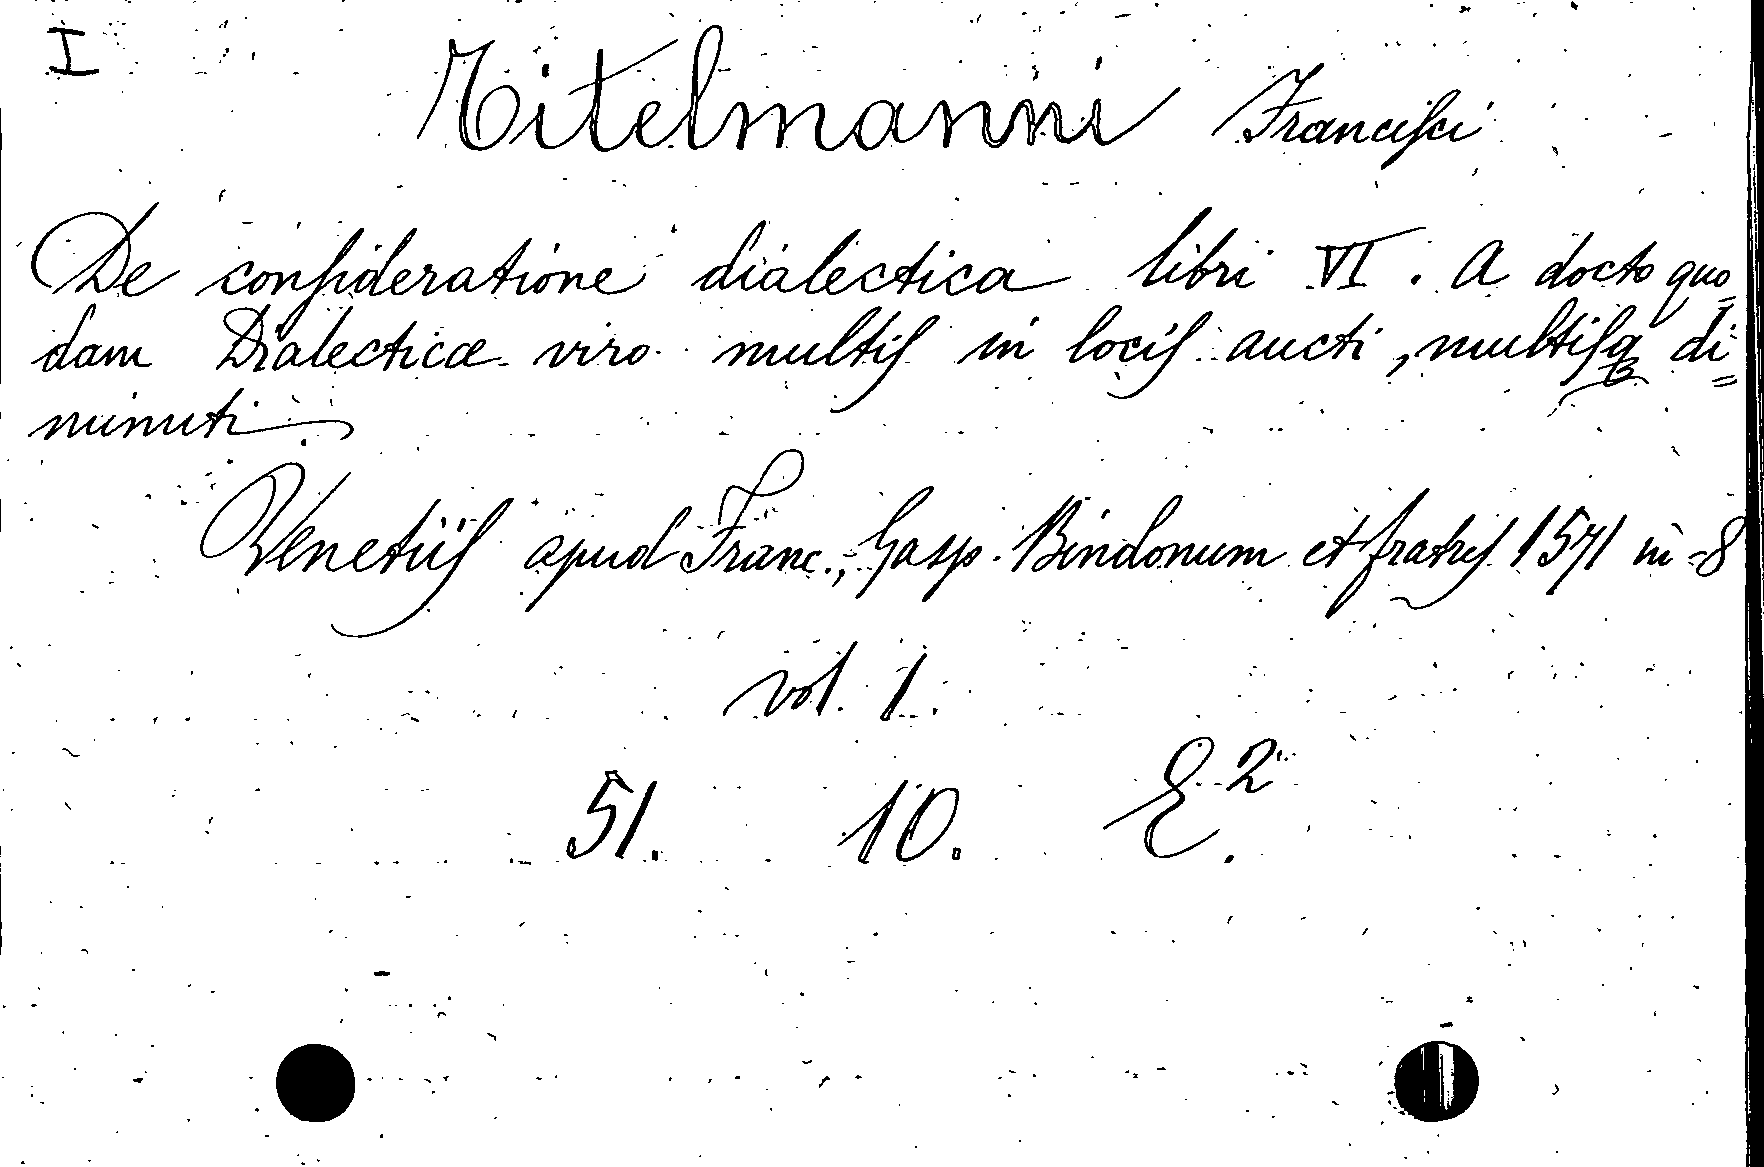 I
Titelmanni Francisci
De consideratione dialectica libri VI. A docto quo=
dam Dialecticæ viro multis in locis aucti, multisq di=
minuti
Venetiis apud Franc., Gasp. Bindonum et fratres 1571 in-8
vol. 1.
51. 10. E².